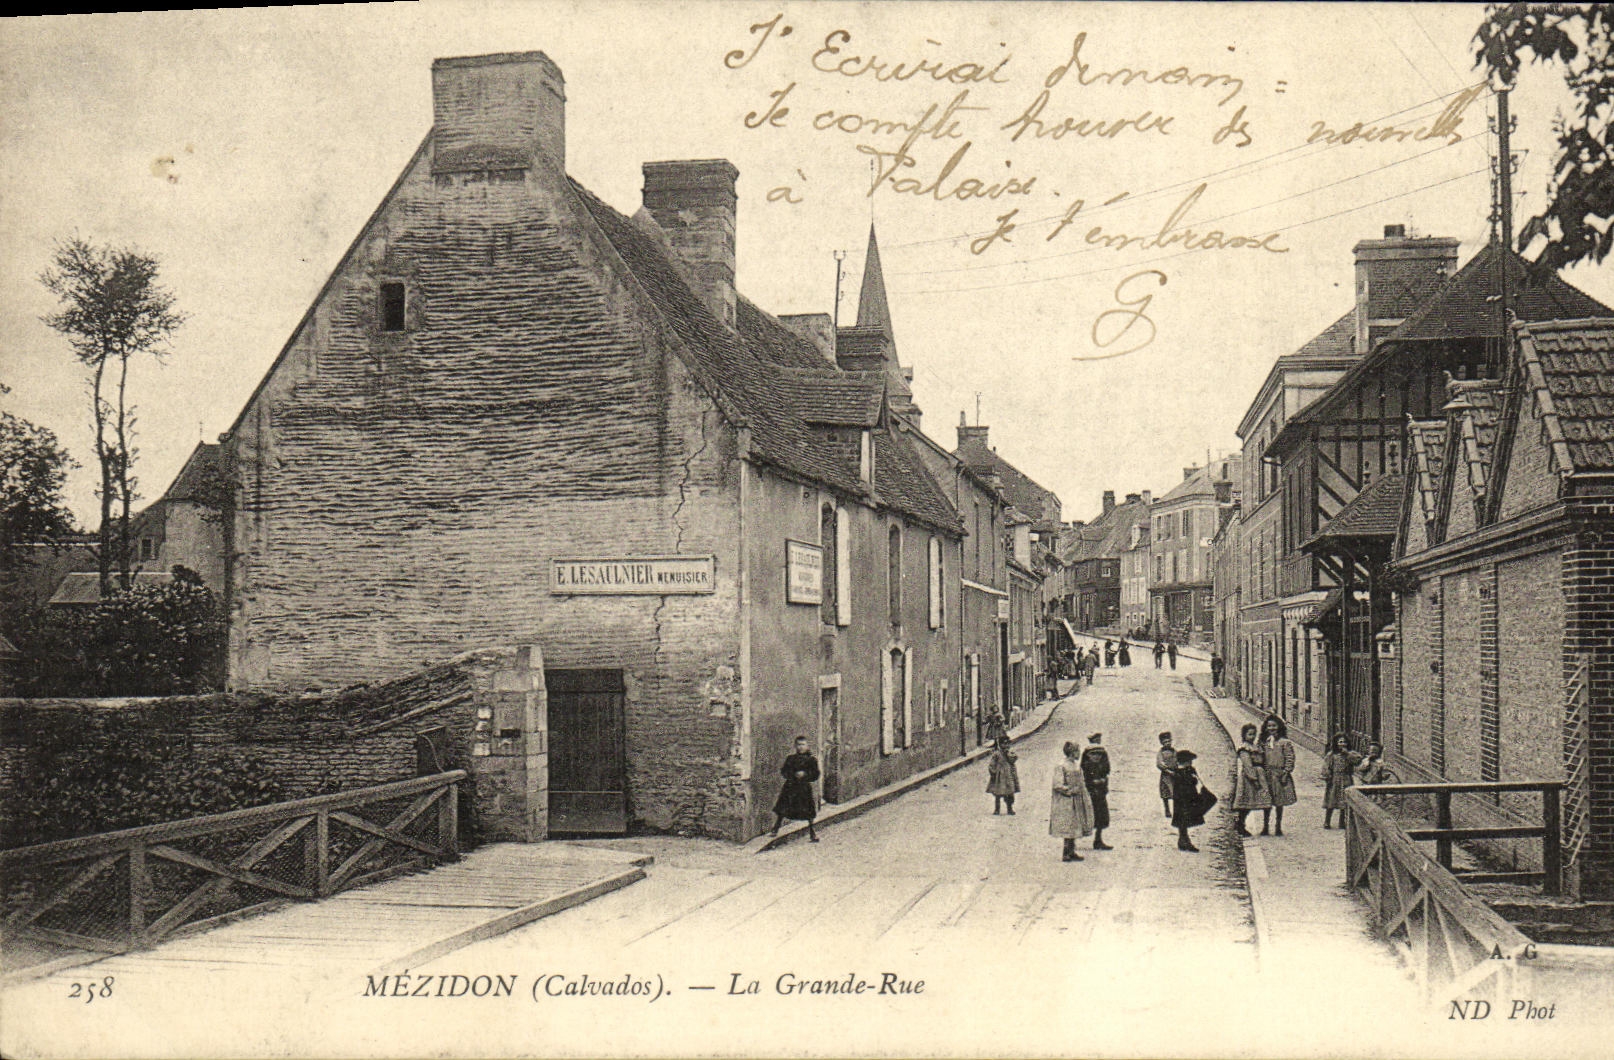 J' Ecrirai demain =
Je compte trouver des nouvelles
à Falaise.
Je t'embrasse
G
E. LESAULNIER MENUISIER
E. LESAULNIER
258
MÉZIDON (Calvados). — La Grande-Rue
A. G
ND Phot